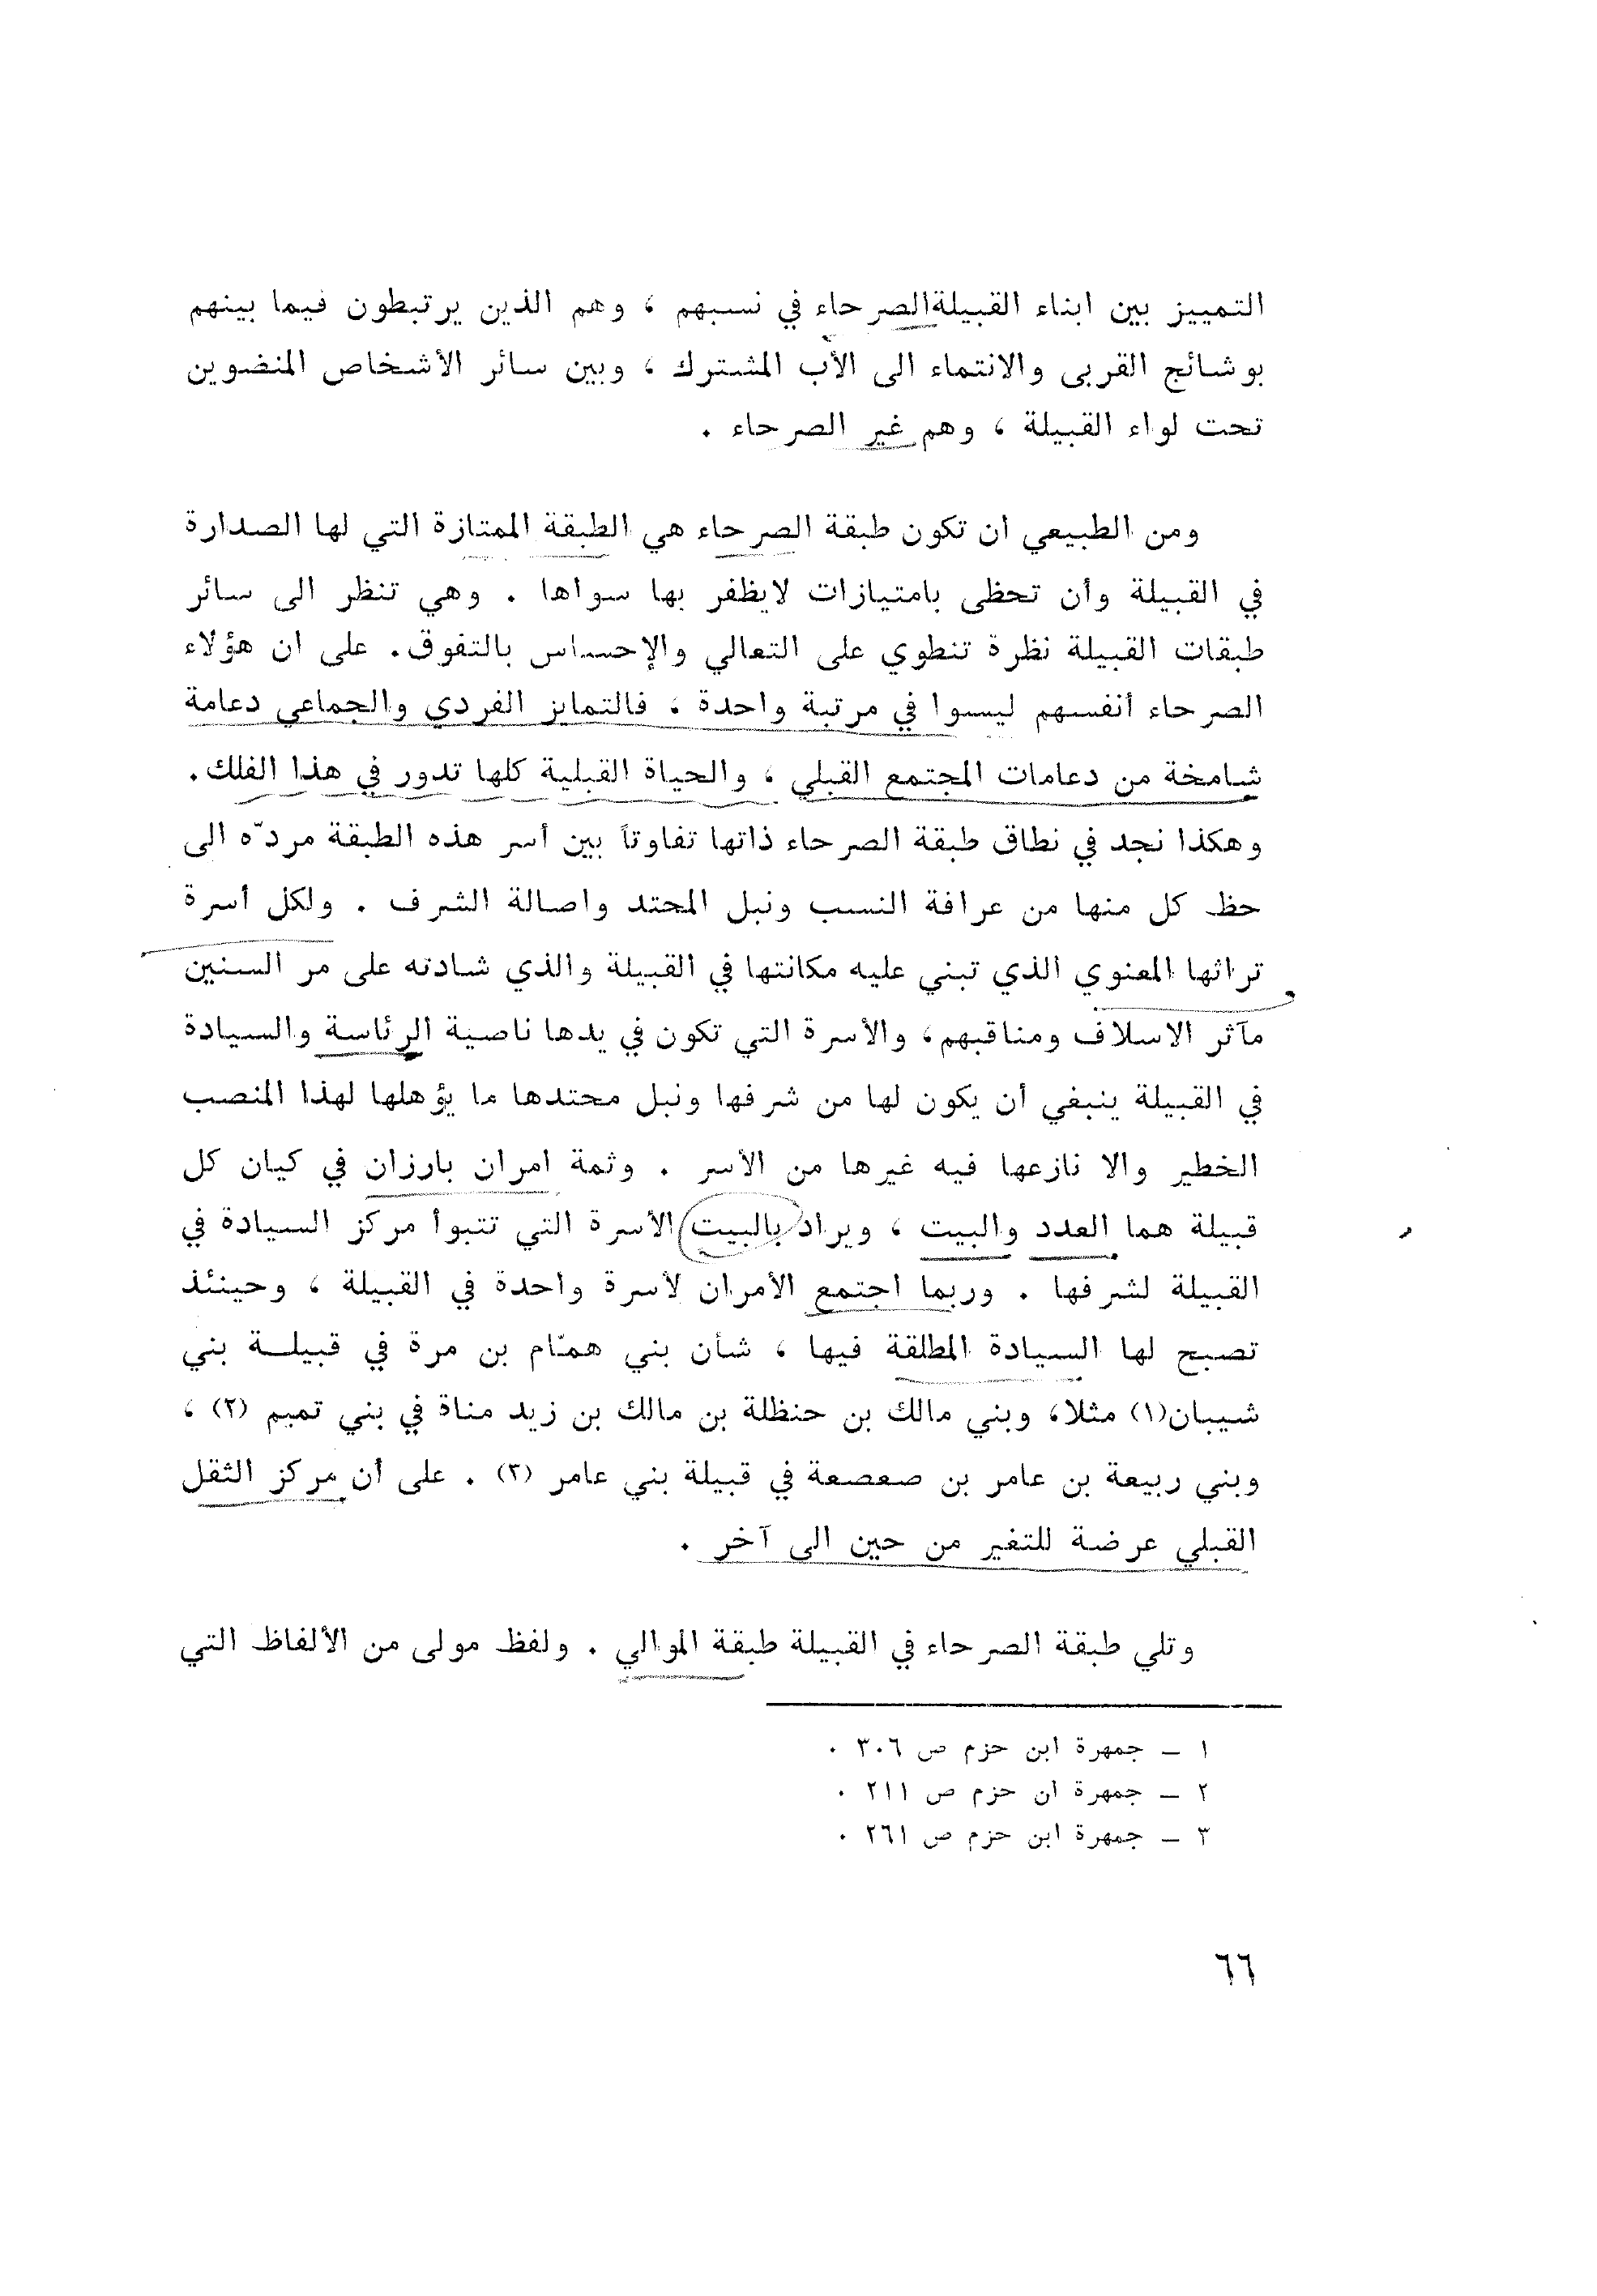 التمييز بين ابناء القبيلة الصرحاء في نسبهم ، وهم الذين يرتبطون فيما بينهم
بوشائج القربى والانتماء الى الأب المشترك ، وبين سائر الأشخاص المنضوين
تحت لواء القبيلة ، وهم غير الصرحاء .
ومن الطبيعي ان تكون طبقة الصرحاء هي الطبقة الممتازة التي لها الصدارة
في القبيلة وأن تحظى بامتيازات لايظفر بها سواها . وهي تنظر الى سائر
طبقات القبيلة نظرة تنطوي على التعالي والإحساس بالتفوق. على ان هؤلاء
الصرحاء أنفسهم ليسوا في مرتبة واحدة ، فالتمايز الفردي والجماعي دعامة
شامخة من دعامات المجتمع القبلي ، والحياة القبلية كلها تدور في هذا الفلك.
وهكذا نجد في نطاق طبقة الصرحاء ذاتها تفاوتاً بين أسر هذه الطبقة مردّه الى
حظ كل منها من عراقة النسب ونبل المحتد واصالة الشرف . ولكل أسرة
تراثها المعنوي الذي تبني عليه مكانتها في القبيلة والذي شادته على مر السنين
مآثر الاسلاف ومناقبهم، والأسرة التي تكون في يدها ناصية الرئاسة والسيادة
في القبيلة ينبغي أن يكون لها من شرفها ونبل محتدها ما يؤهلها لهذا المنصب
الخطير والا نازعها فيه غيرها من الأسر . وثمة امران بارزان في كيان كل
قبيلة هما العدد والبيت ، ويراد بالبيت الأسرة التي تتبوأ مركز السيادة في
القبيلة لشرفها . وربما اجتمع الأمران لأسرة واحدة في القبيلة ، وحينئذ
تصبح لها السيادة المطلقة فيها ، شأن بني همّام بن مرة في قبيلــة بني
شيبان(١) مثلا، وبني مالك بن حنظلة بن مالك بن زيد مناة في بني تميم (٢) ،
وبني ربيعة بن عامر بن صعصعة في قبيلة بني عامر (٣) . على أن مركز الثقل
القبلي عرضة للتغير من حين الى آخر .
وتلي طبقة الصرحاء في القبيلة طبقة الموالي . ولفظ مولى من الألفاظ التي
١ – جمهرة ابن حزم ص ٣٠٦ .
٢ – جمهرة ان حزم ص ٢١١ .
٣ – جمهرة ابن حزم ص ٢٦١ .
٦٦